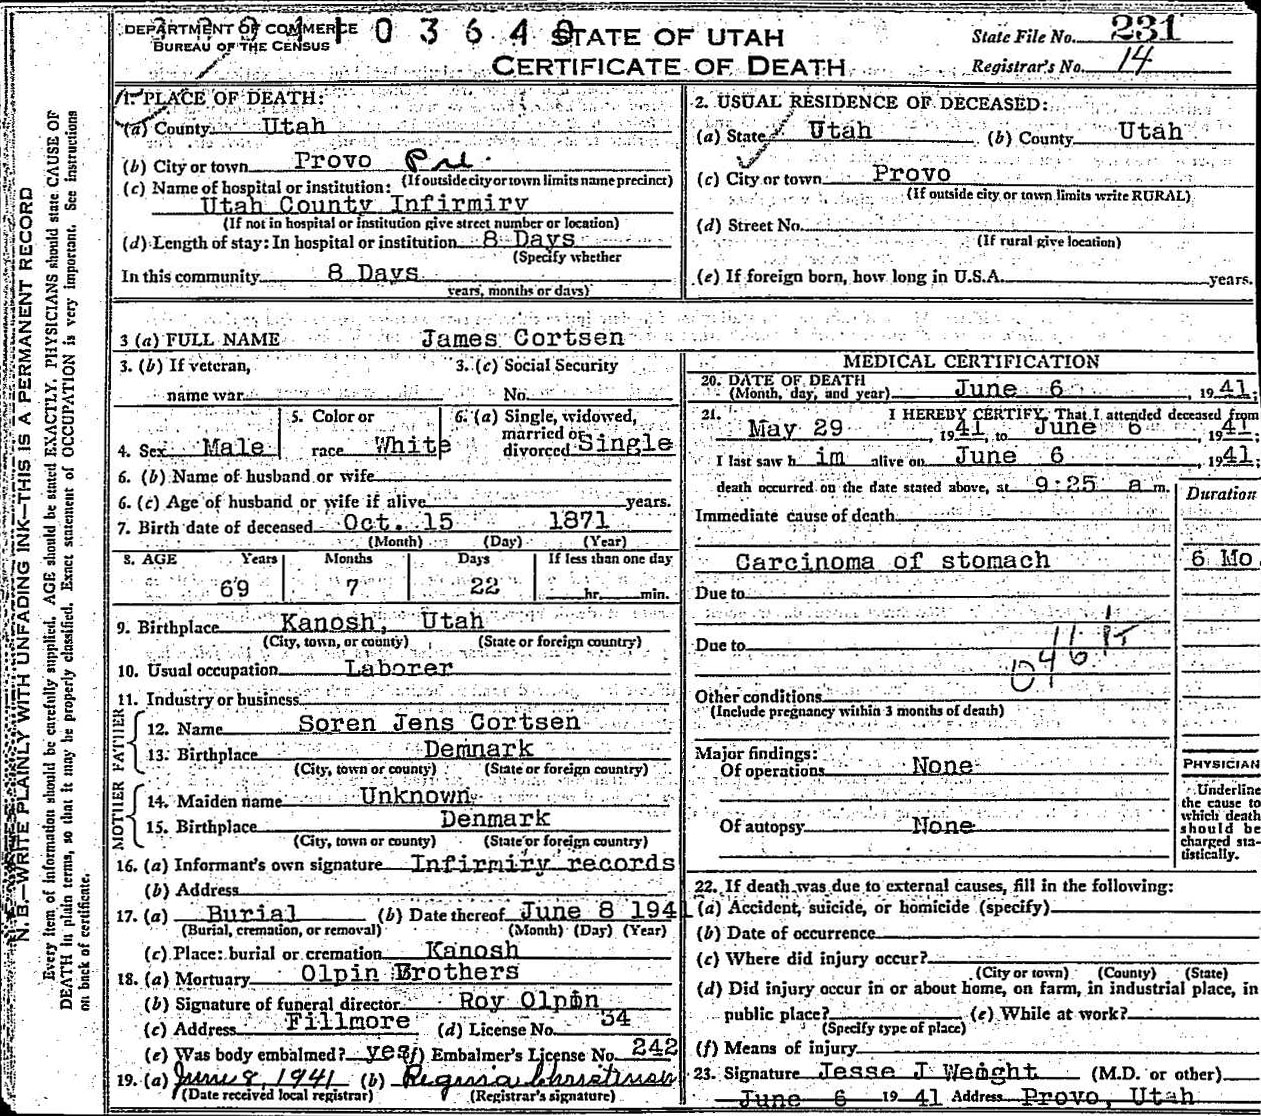 DEPARTMENT OF COMMERCE
BUREAU OF THE CENSUS
STATE OF UTAH
CERTIFICATE OF DEATH
State File No. 231
Registrar's No. 14
1. PLACE OF DEATH:
(a) County Utah
(b) City or town Provo
(If outside city or town limits name precinct)
(c) Name of hospital or institution:
Utah County Infirmiry
(If not in hospital or institution give street number or location)
(d) Length of stay: In hospital or institution 8 Days
(Specify whether
In this community 8 Days
years, months or days)
2. USUAL RESIDENCE OF DECEASED:
(a) State Utah (b) County Utah
(c) City or town Provo
(If outside city or town limits write RURAL)
(d) Street No.
(If rural give location)
(e) If foreign born, how long in U.S.A. years.
3 (a) FULL NAME James Cortsen
3. (b) If veteran, 3. (c) Social Security
name war No.
4. Sex Male 5. Color or race White 6. (a) Single, widowed, married or divorced Single
6. (b) Name of husband or wife
6. (c) Age of husband or wife if alive years.
7. Birth date of deceased Oct. 15 1871
(Month) (Day) (Year)
8. AGE Years Months Days If less than one day
69 7 22 hr. min.
9. Birthplace Kanosh, Utah
(City, town, or county) (State or foreign country)
10. Usual occupation Laborer
11. Industry or business
FATHER
12. Name Soren Jens Cortsen
13. Birthplace Demnark
(City, town or county) (State or foreign country)
MOTHER
14. Maiden name Unknown
15. Birthplace Denmark
(City, town or county) (State or foreign country)
16. (a) Informant's own signature Infirmiry records
(b) Address
17. (a) Burial (b) Date thereof June 8 1941
(Burial, cremation, or removal) (Month) (Day) (Year)
(c) Place: burial or cremation Kanosh
18. (a) Mortuary Olpin Brothers
(b) Signature of funeral director Roy Olpin
(c) Address Fillmore (d) License No. 34
(e) Was body embalmed? yes (f) Embalmer's License No. 242
19. (a) June 8, 1941 (b) Regina Christensen
(Date received local registrar) (Registrar's signature)
MEDICAL CERTIFICATION
20. DATE OF DEATH
(Month, day, and year) June 6, 1941;
21. I HEREBY CERTIFY, That I attended deceased from
May 29, 1941, to June 6, 1941;
I last saw him alive on June 6, 1941;
death occurred on the date stated above, at 9:25 a m.
Duration
Immediate cause of death
Carcinoma of stomach 6 Mo
Due to
Due to
046
Other conditions
(Include pregnancy within 3 months of death)
Major findings:
Of operations None
Of autopsy None
PHYSICIAN
Underline
the cause to
which death
should be
charged sta-
tistically.
22. If death was due to external causes, fill in the following:
(a) Accident, suicide, or homicide (specify)
(b) Date of occurrence
(c) Where did injury occur?
(City or town) (County) (State)
(d) Did injury occur in or about home, on farm, in industrial place, in
public place? (e) While at work?
(Specify type of place)
(f) Means of injury
23. Signature Jesse J Weight (M.D. or other)
June 6 1941 Address Provo, Utah
N. B.—WRITE PLAINLY WITH UNFADING INK—THIS IS A PERMANENT RECORD
Every item of information should be carefully supplied. AGE should be stated EXACTLY. PHYSICIANS should state CAUSE OF
DEATH in plain terms, so that it may be properly classified. Exact statement of OCCUPATION is very important. See instructions
on back of certificate.